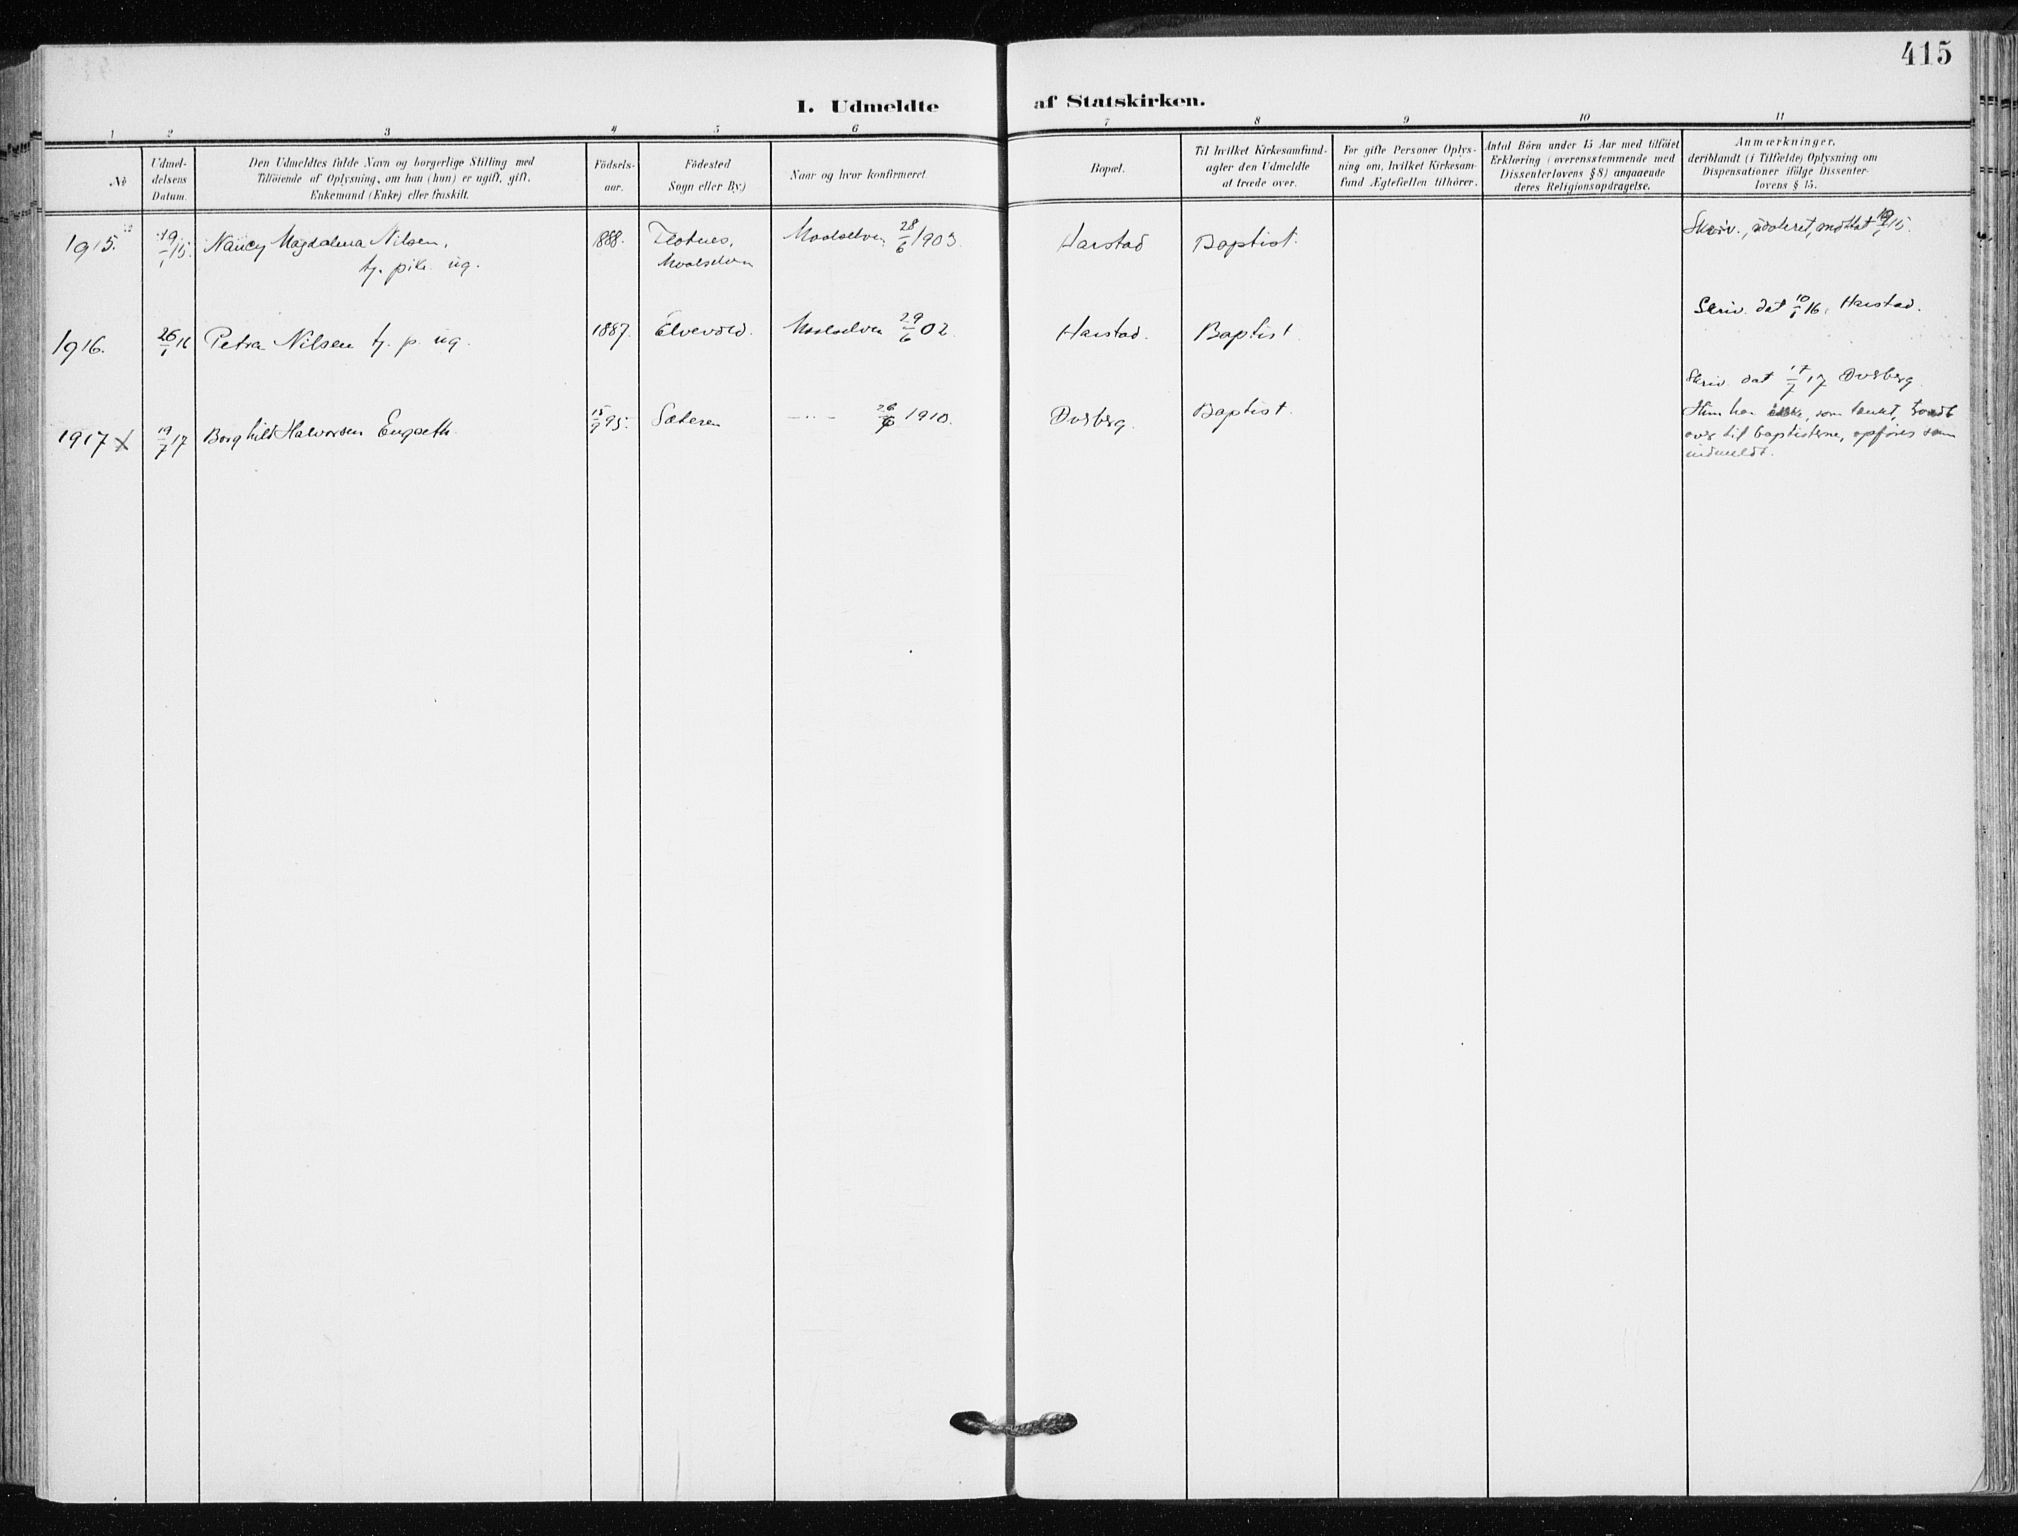 415
I. Udmeldte af Statskirken.
1 2 3 4 5 6 7 8 9 10 11
No
Udmel-
delsens
Datum.
Den Udmeldtes fulde Navn og borgerlige Stilling med
Tilföiende af Oplysning, om han (hun) er ugift, gift,
Enkemand (Enke) eller fraskilt.
Födsels-
aar.
Födested
Sogn eller By.)
Naar og hvor konfirmeret.
Bopæl.
Til hvilket Kirkesamfund
agter den Udmeldte
at træde over.
For gifte Personer Oplys-
ning om, hvilket Kirkesam-
fund Ægtefællen tilhörer.
Antal Börn under 15 Aar med tilföiet
Erklæring (overensstemmende med
Dissenterlovens § 8) angaaende
deres Religionsopdragelse.
Anmærkninger,
deriblandt (i Tilfælde) Oplysning om
Dispensationer ifölge Dissenter-
lovens § 15.
1915. 19/1 15. Nancy Magdalena Nilsen, 1888. Maalselven 28/6 1903. Harstad Baptist. Skriv., udateret, mottat 19/1 15.
tj. pike ug. Maalselven
Skriv. dat 10/1 16, Harstad.
1916. 26/1 16 Petra Nilsen tj. p. ug. 1887. Elvevold. Maalselven 29/6 02. Harstad. Baptist
Skriv. dat 17/7 17 Øverberg
1917 x 19/7 17 Borghild Halvorsen Engseth 15/9 95. Sæteren —„— 26/6 1910. Øverberg. Baptist. Hun har ikke, som tænkt, traadt
over til baptisterne, opføres som
indmeldt.